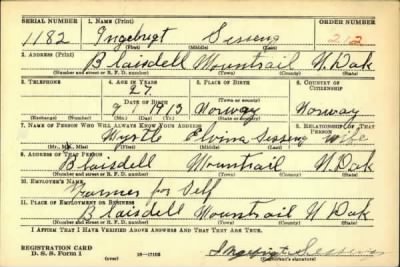 SERIAL NUMBER 1. NAME (Print) ORDER NUMBER
1182 Ingebrigt Sisseng 212
(First) (Middle) (Last)
2. ADDRESS (Print)
Blaisdell Mountrail N. Dak
(Number and street or R. F. D. number) (Town) (County) (State)
3. TELEPHONE 4. AGE IN YEARS 5. PLACE OF BIRTH 6. COUNTRY OF CITIZENSHIP
27
DATE OF BIRTH Norway (Town or county) Norway
9 / 1913
(Exchange) (Number) (Mo.) (Day) (Yr.) (State or country)
7. NAME OF PERSON WHO WILL ALWAYS KNOW YOUR ADDRESS 8. RELATIONSHIP OF THAT PERSON
Myrtle Elvina Sisseng Wife
(Mr., Mrs., Miss) (First) (Middle) (Last)
9. ADDRESS OF THAT PERSON
Blaisdell Mountrail N Dak
(Number and street or R. F. D. number) (Town) (County) (State)
10. EMPLOYER'S NAME
Farmer for Self
11. PLACE OF EMPLOYMENT OR BUSINESS
Blaisdell Mountrail N Dak
(Number and street or R. F. D. number) (Town) (County) (State)
I AFFIRM THAT I HAVE VERIFIED ABOVE ANSWERS AND THAT THEY ARE TRUE.
REGISTRATION CARD
D. S. S. Form 1 (over) Ingebrigt Sisseng
(Registrant's signature)